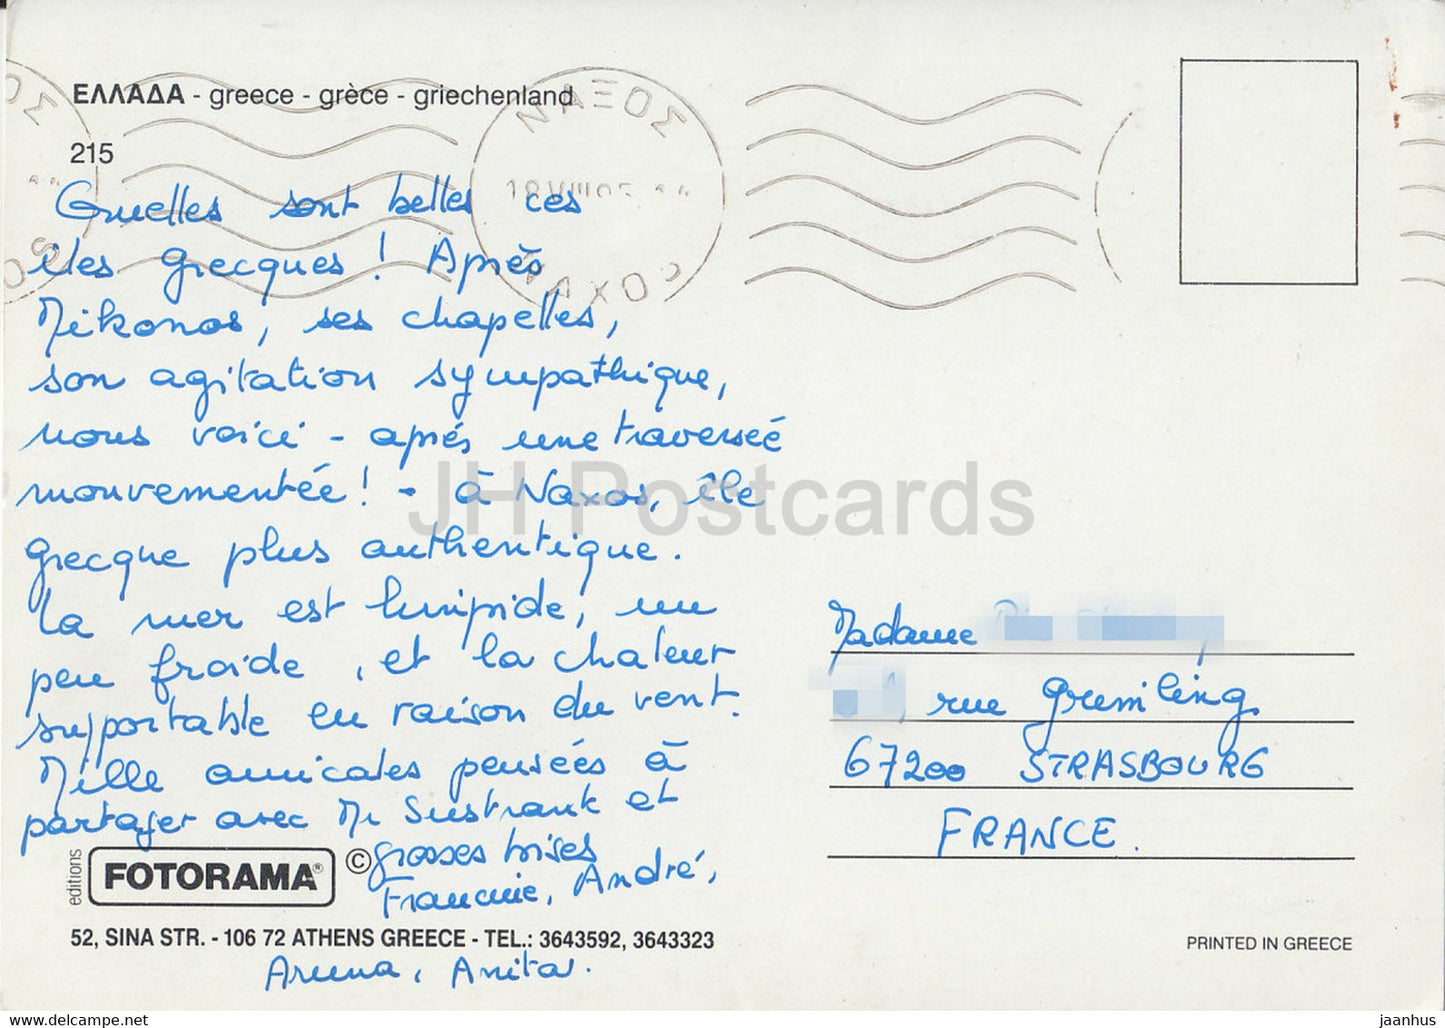 ΕΛΛΑΔΑ - greece - grèce - griechenland
ΝΑΞΟΣ
215
Quelles sont belles ces
îles grecques ! Après
Mikonos, ses chapelles,
son agitation sympathique,
nous voici - après une traversée
mouvementée ! - à Naxos, île
grecque plus authentique.
La mer est limpide, un
peu froide, et la chaleur
supportable en raison du vent.
Mille amicales pensées à
partager avec Mr et
grosses bises
Francine, André,
Anita.
editions
FOTORAMA® ©
52, SINA STR. - 106 72 ATHENS GREECE - TEL.: 3643592, 3643323
Madame
, rue Grumiling
67200 STRASBOURG
FRANCE.
PRINTED IN GREECE
JH Postcards
hippostcard.com
jaanhus